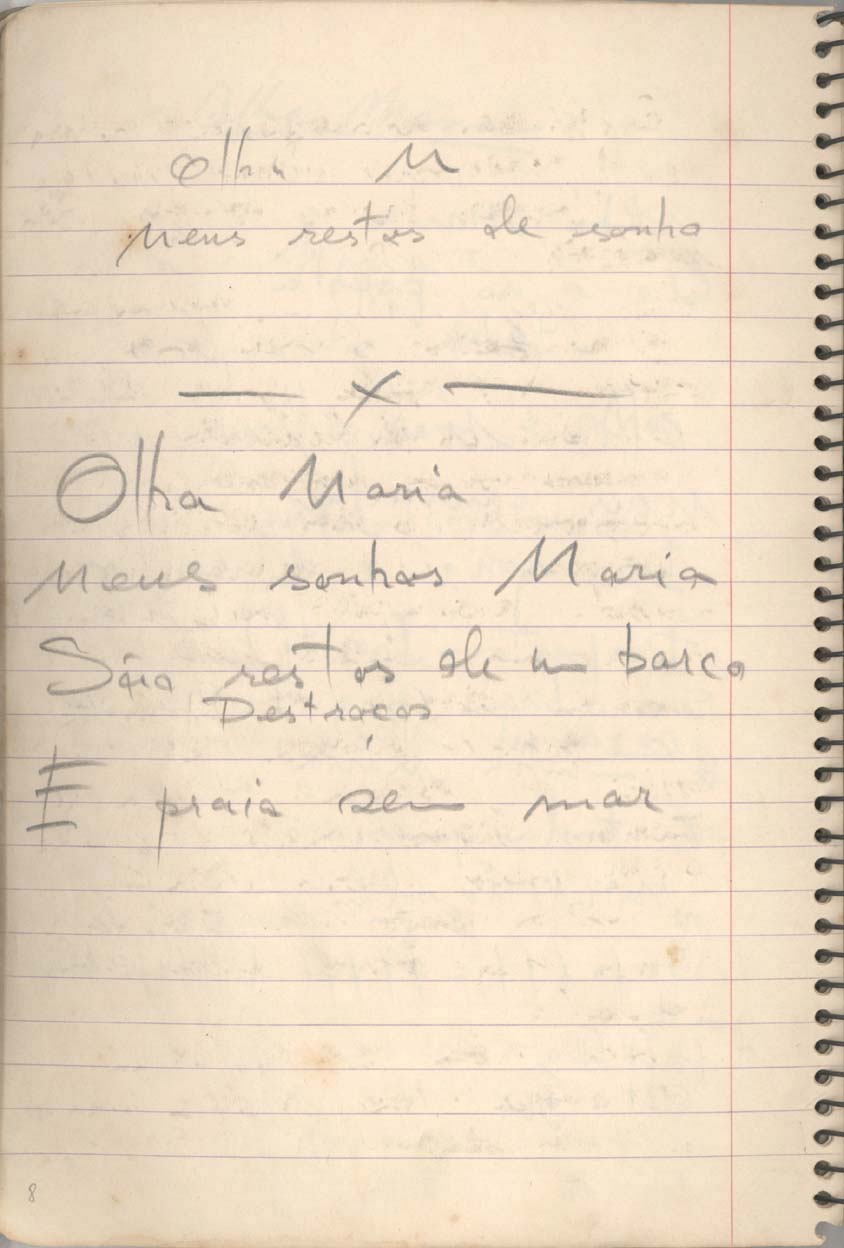 Olha M
Meus restos de sonho
— x —
Olha Maria
Meus sonhos Maria
São restos de um barco
Destroços
E praia sem mar
8